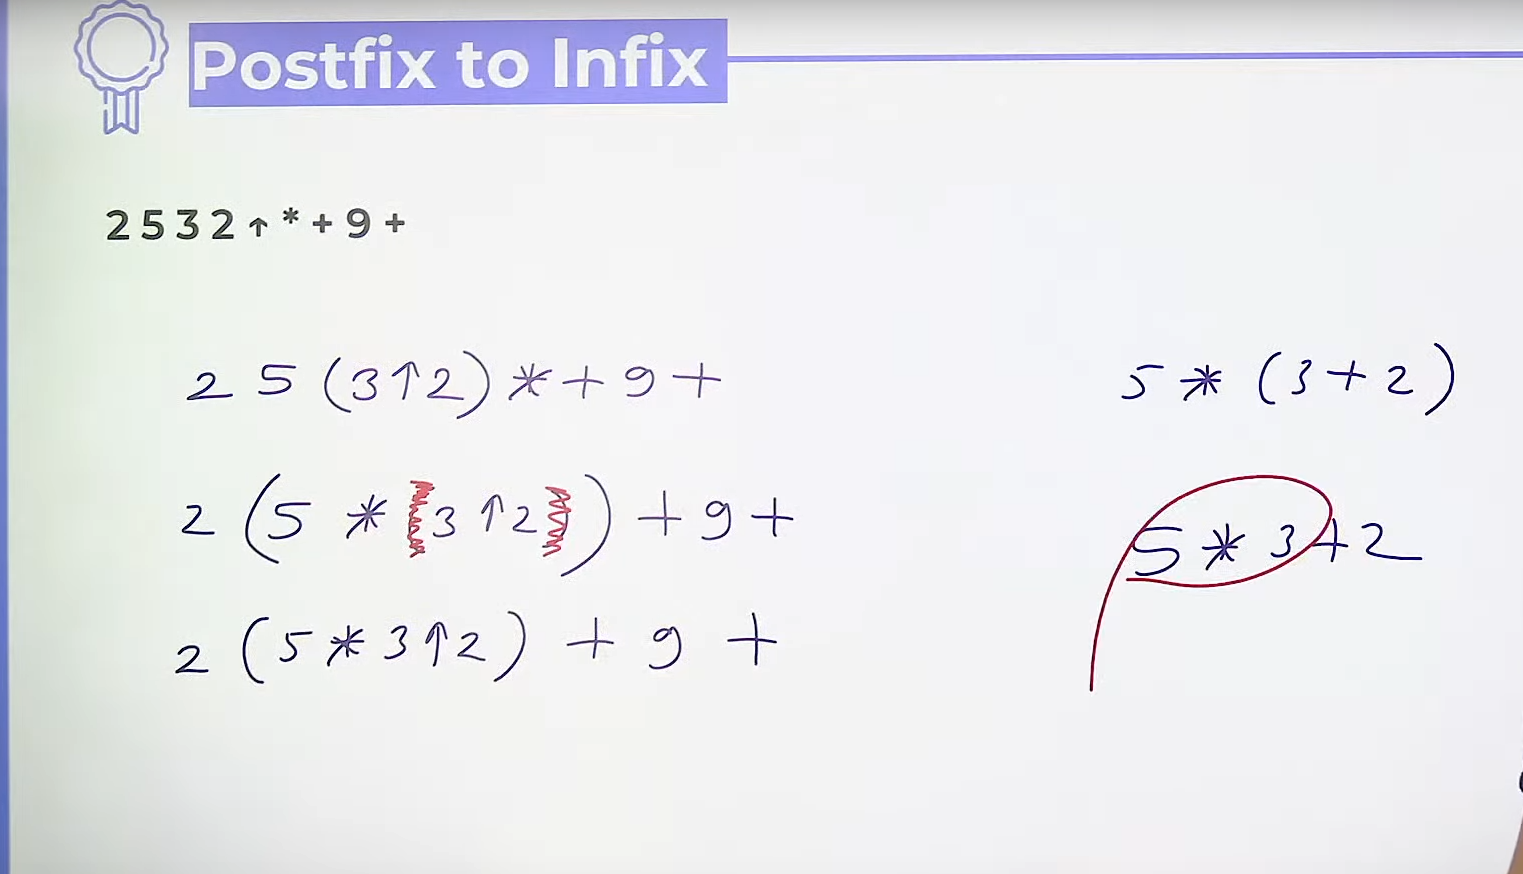 Postfix to Infix
2 5 3 2 ↑ * + 9 +
2 5 (3↑2) * + 9 +
2 (5 * (3↑2)) + 9 +
2 (5 * 3↑2) + 9 +
5 * (3 + 2)
5 * 3 + 2